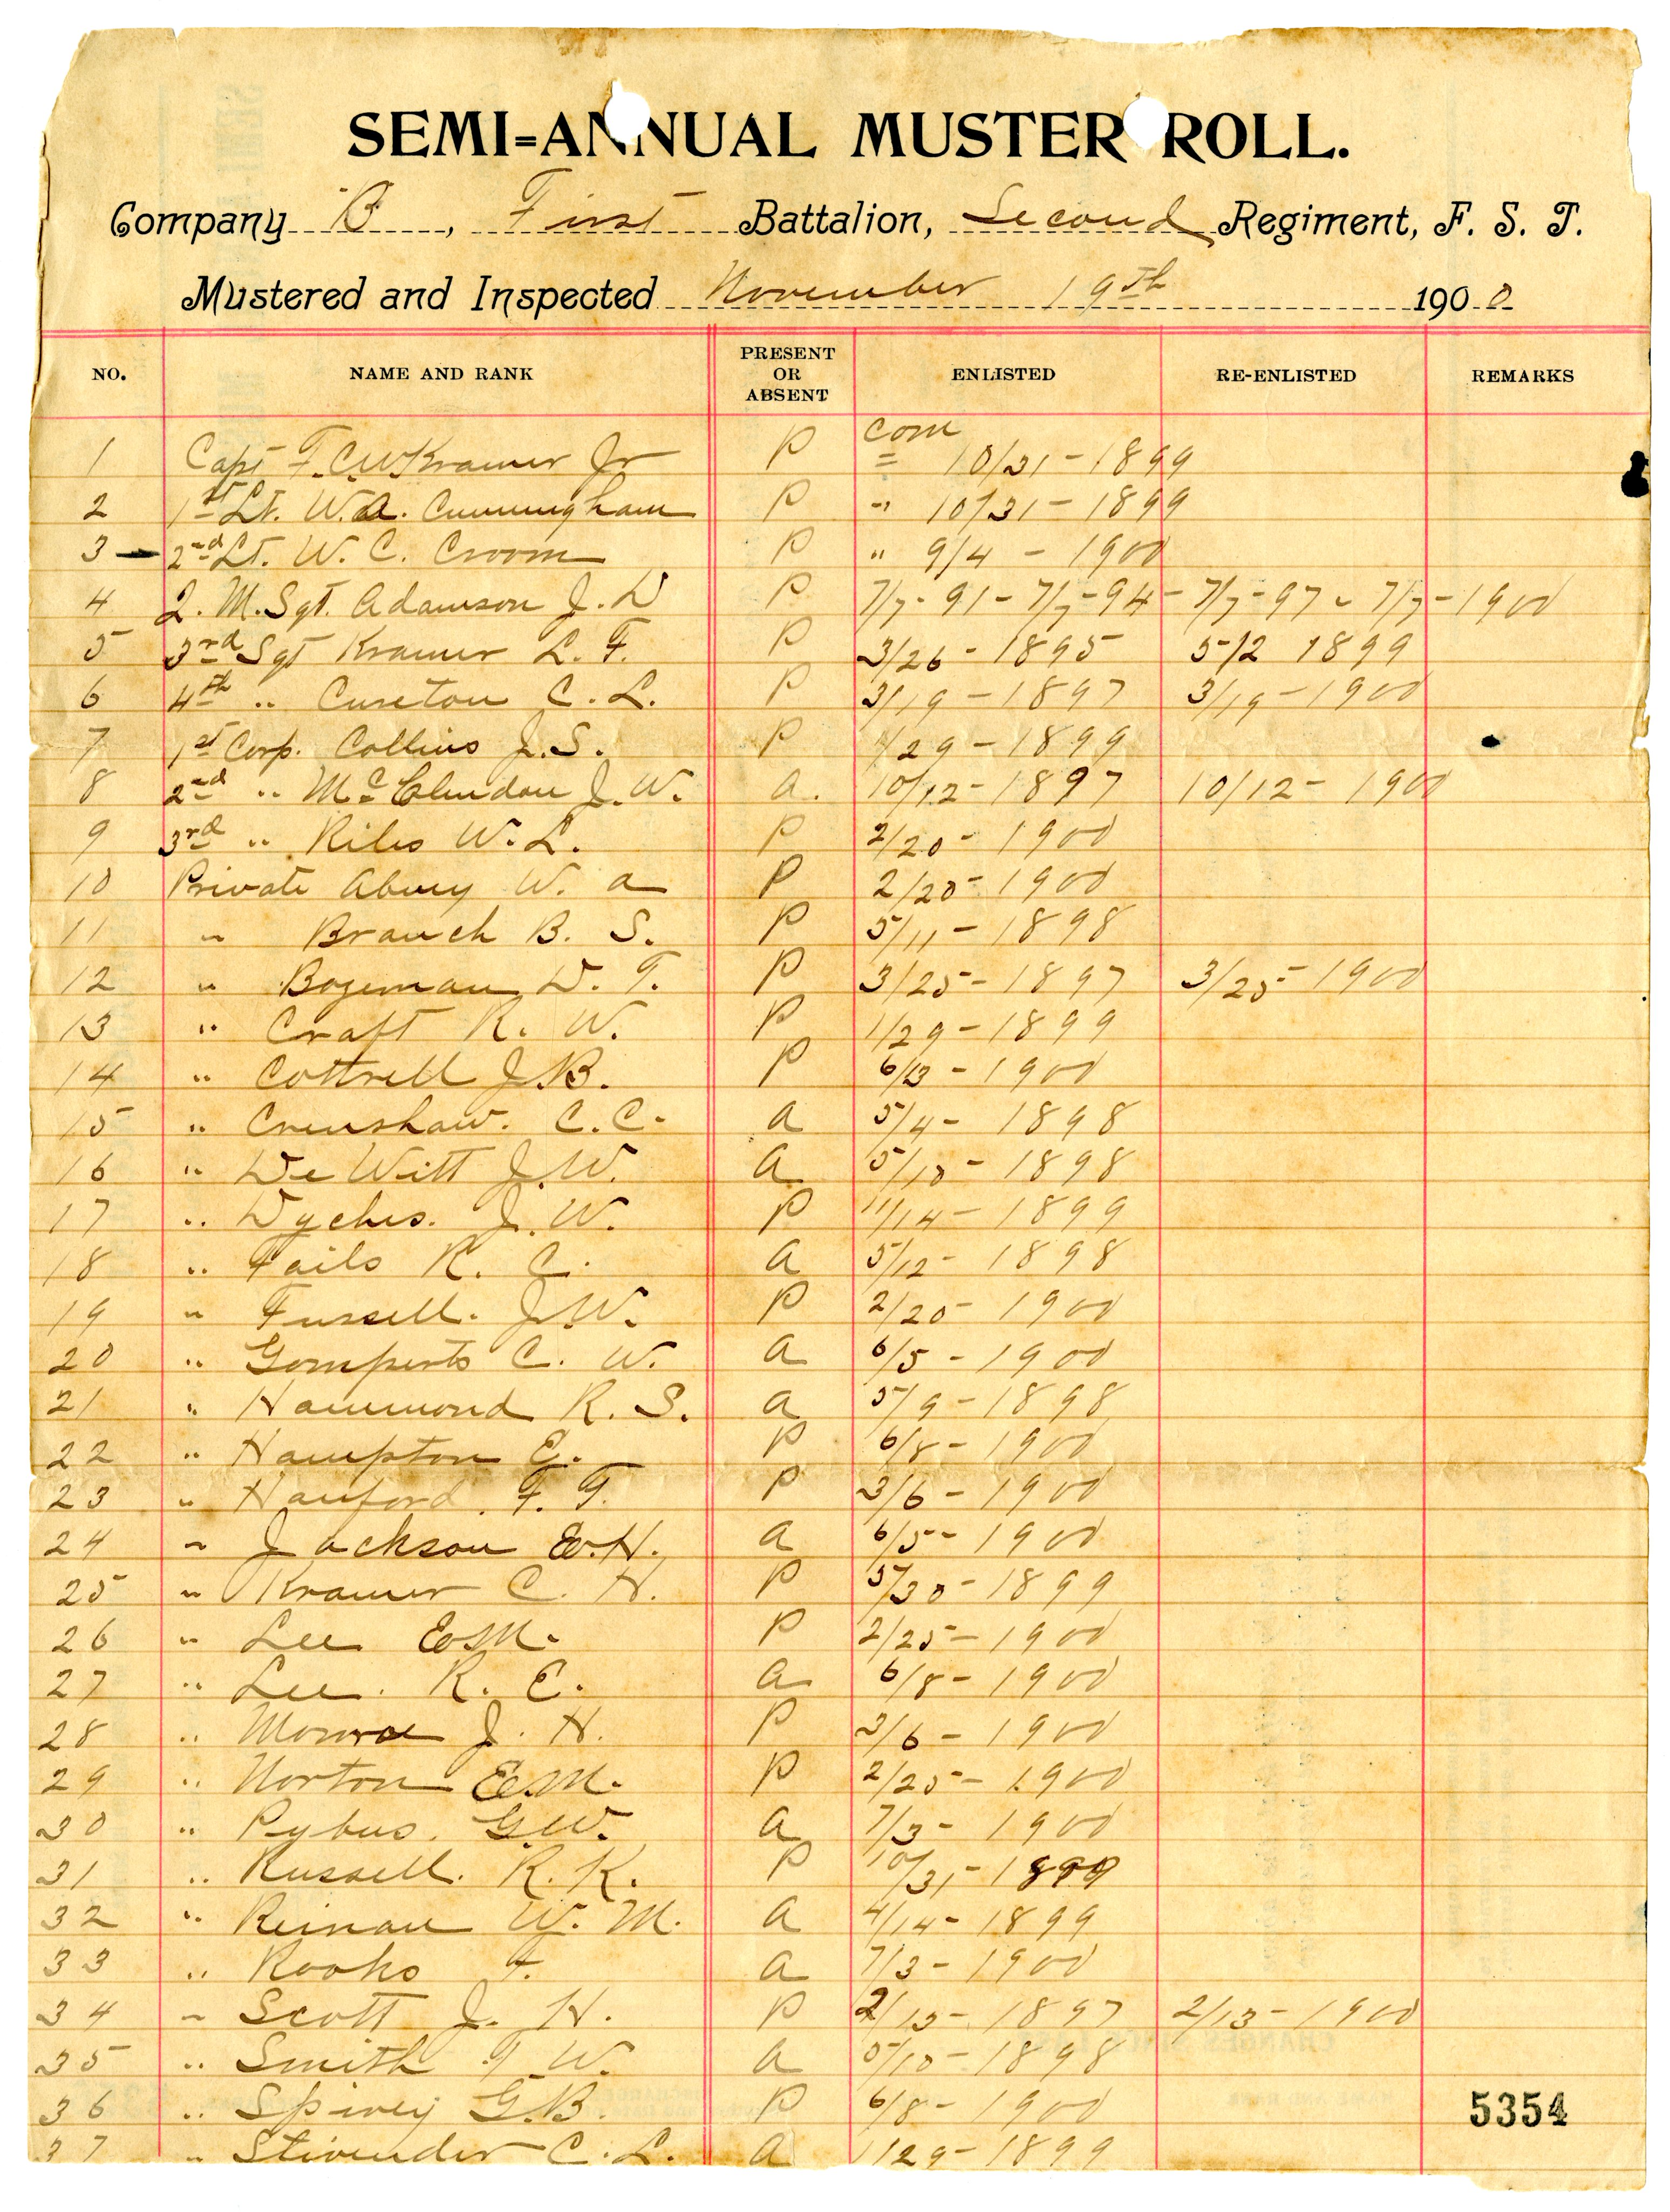 SEMI=ANNUAL MUSTER ROLL.
Company "B, First Battalion, Second Regiment, F. S. T.
Mustered and Inspected November 19th 1900
NO. NAME AND RANK PRESENT OR ABSENT ENLISTED RE-ENLISTED REMARKS
1 Capt F.C.W Kramer Jr P com 10/31-1899
2 1st Lt. W.A. Cunningham P " 10/31-1899
3 2nd Lt. W. C. Croom P " 9/4 - 1900
4 Q. M. Sgt. Adamson J. D P 7/7-91-7/7-94-7/7-97-7/7-1900
5 3rd Sgt Kramer L. F. P 3/26-1895 5/2 1899
6 4th " Cureton C. L. P 3/19-1897 3/19-1900
7 1st Corp. Collins J.S. P 1/29-1899
8 2nd " McClendon J. W. a. 10/12-1897 10/12-1900
9 3rd " Riles W. L. P 2/20-1900
10 Private W. a P 2/20-1900
11 " Branch B. S. P 5/11-1898
12 " Bozeman D. T. P 3/25-1897 3/25-1900
13 " Craft R. W. P 1/29-1899
14 " Cottrell J.B. P 6/13-1900
15 " Crenshaw. C.C. a 5/4-1898
16 " De Witt J.W. a 5/10-1898
17 " Dyches. J. W. P 11/14-1899
18 " Fails R. C. a 5/12-1898
19 " Fussell. J.W. P 2/20-1900
20 " Gomperts C. W. a 6/5-1900
21 " Hammond R. S. a 5/9-1898
22 " Hampton E. P 6/8-1900
23 " Hanford. F. T. P 3/6-1900
24 " Jackson E.H. a 6/5-1900
25 " Kramer C. H. P 5/30-1899
26 " Lee E.M. P 2/25-1900
27 " Lee. R. E. a 6/8-1900
28 " Monroe J. H. P 3/6-1900
29 " Norton E.M. P 2/25-1900
30 " Pybus. G.W. a 7/3-1900
31 " Russell. R. K. P 10/31-1899
32 " W. M. a 4/14-1899
33 " Rooks F. a 7/3-1900
34 " Scott J. H. P 2/13-1897 2/13-1900
35 " Smith T. W. a 5/10-1898
36 " Spivey G.B. P 6/8-1900
37 " Stivender C. L. a 1/29-1899
5354